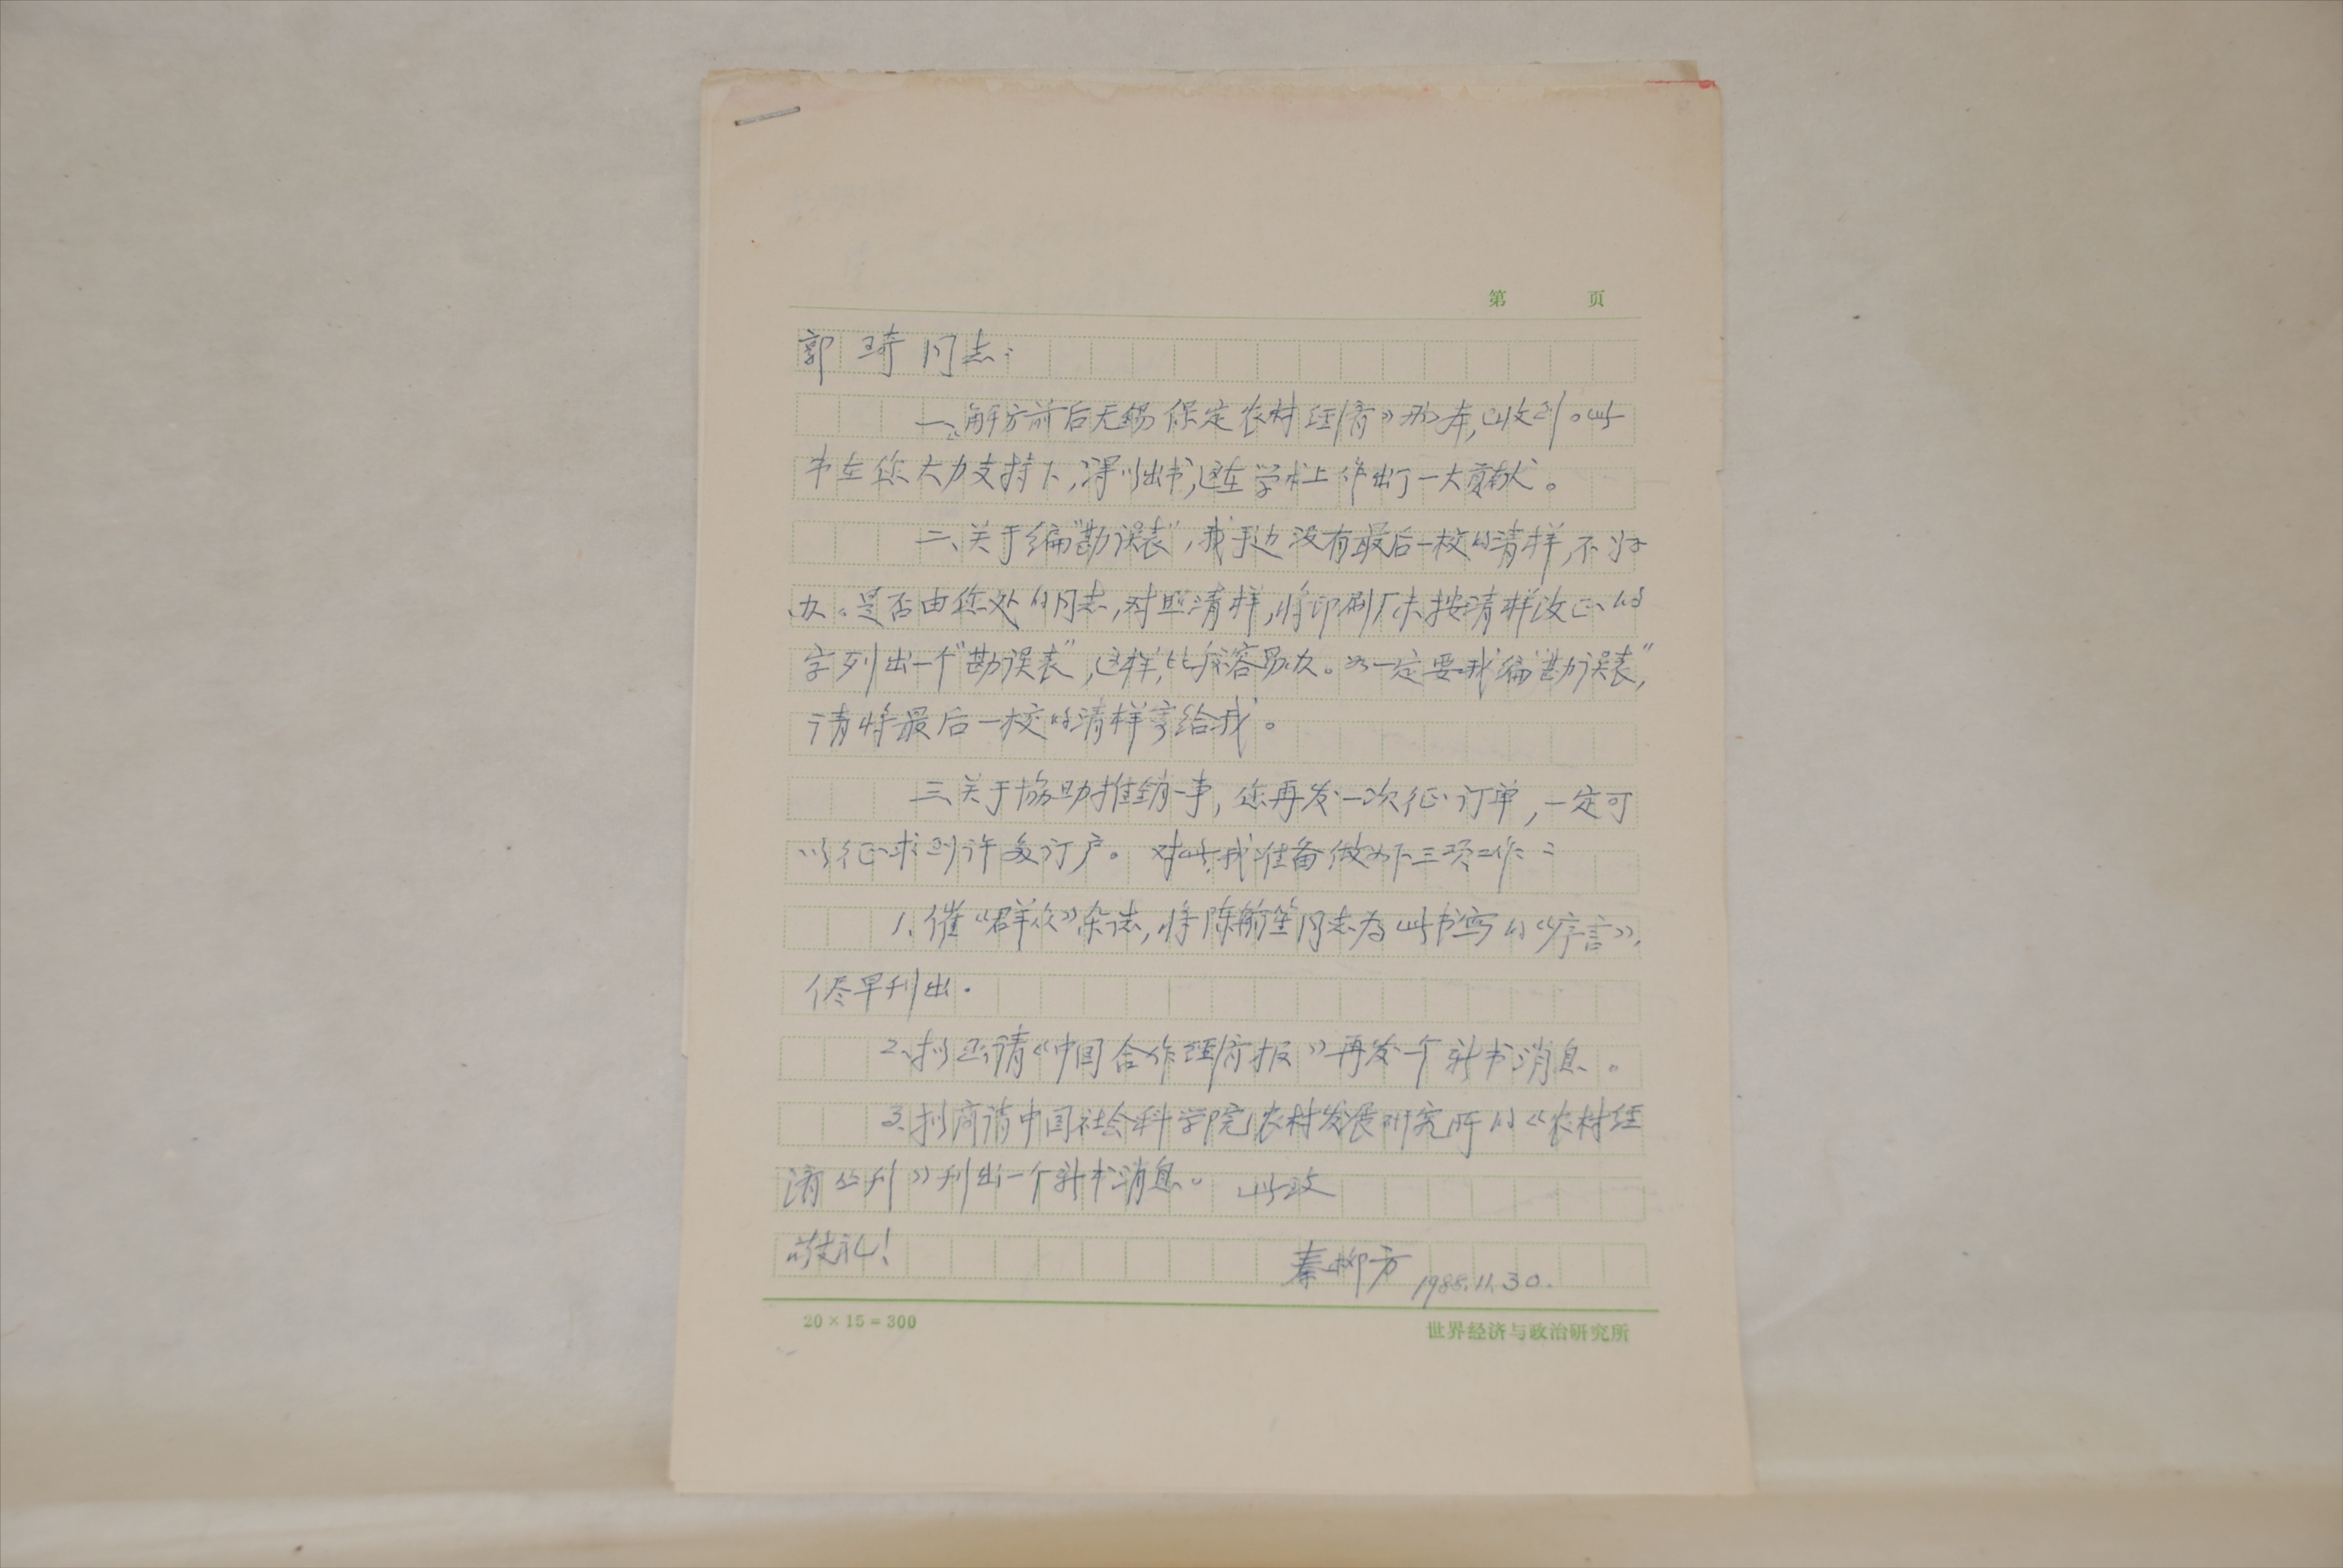 第 页
郭琦同志：
一、《解方前后无锡保定农村经济》那本，收到。此
书在您大力支持下，得以出书，这在学术上作出了一大贡献。
二、关于编“勘误表”，我手边没有最后一校的清样，不好
办。是否由您处的同志，对照清样，将印刷厂未按清样改正的
字列出一个“勘误表”，这样，比较容易办。如一定要我编“勘误表”，
请将最后一校的清样寄给我。
三、关于协助推销一事，您再发一次征订单，一定可
以征求到许多订户。对此，我准备做如下三项工作：
1、催《群众》杂志，将陈翰笙同志为此书写的《序言》，
尽早刊出。
2、拟函请《中国合作经济报》再发一个新书消息。
3、拟商请中国社会科学院农村发展研究所的《农村经
济丛刊》刊出一个新书消息。 此致
敬礼！
秦柳方 1988.11.30.
20×15=300 世界经济与政治研究所